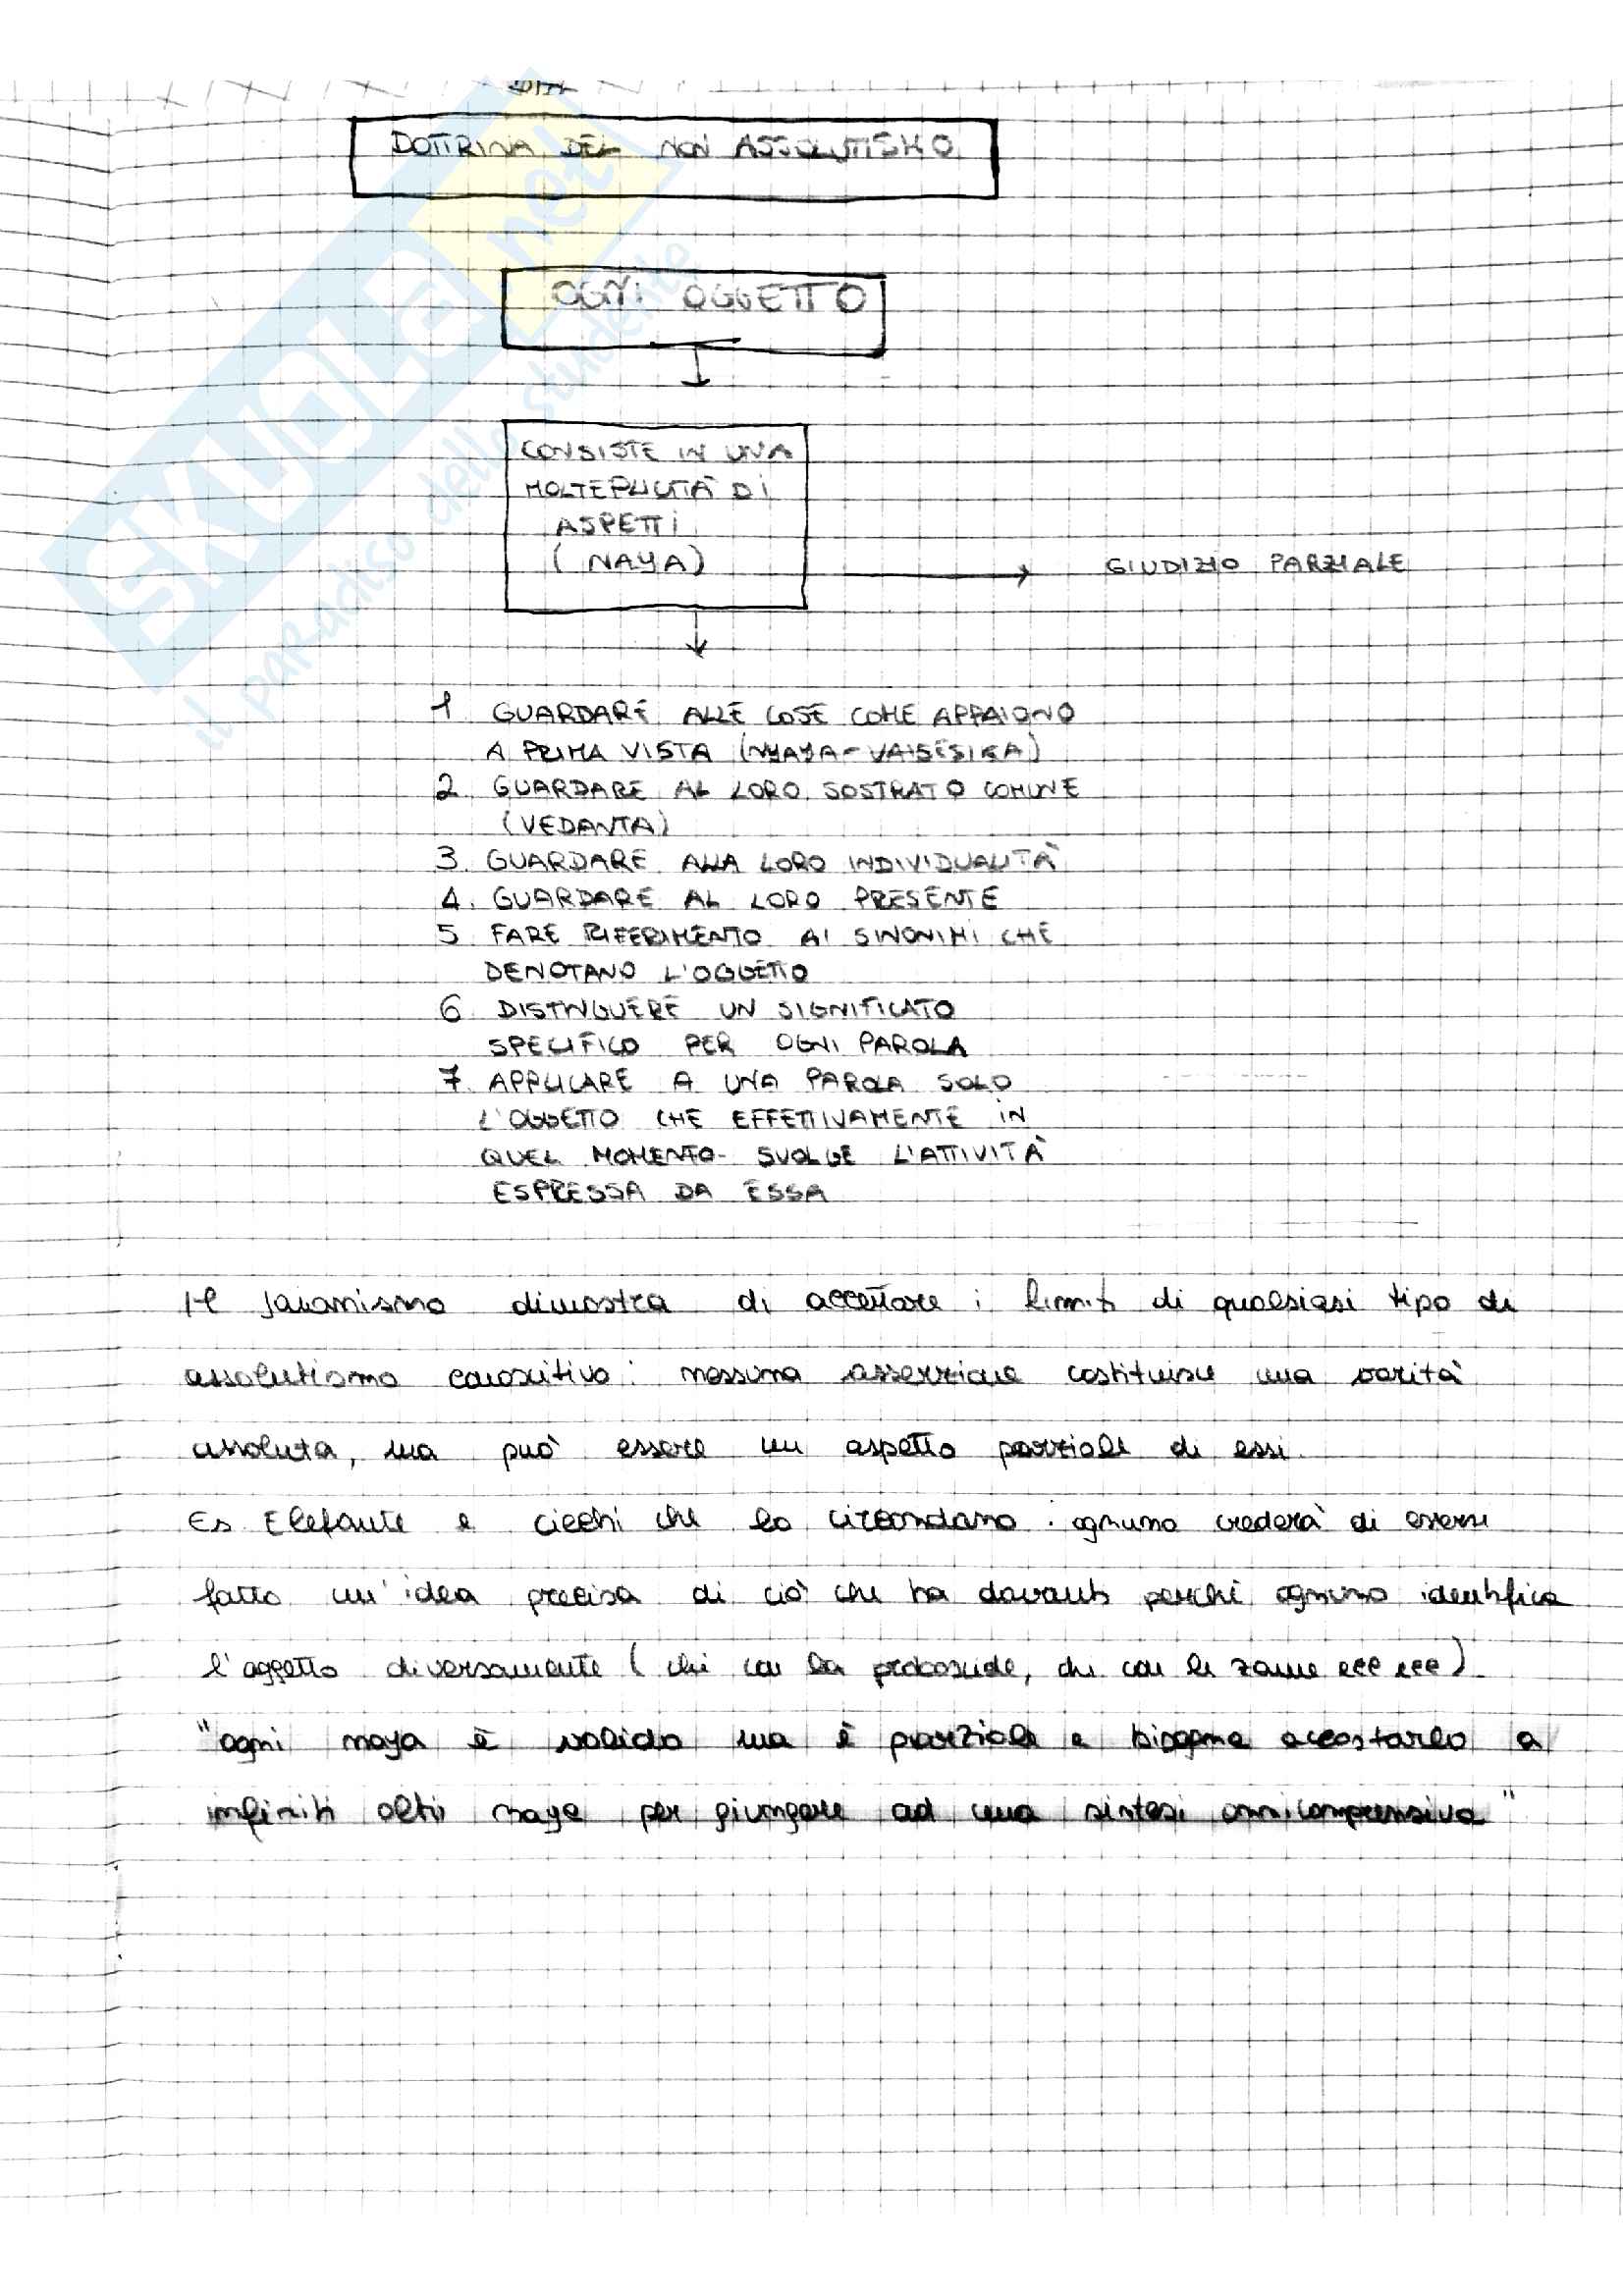 DOTTRINA DEL NON ASSOLUTISMO
OGNI OGGETTO
CONSISTE IN UNA
MOLTEPLICITÀ DI
ASPETTI
(NAYA)
GIUDIZIO PARZIALE
1 GUARDARE ALLE COSE COME APPAIONO
A PRIMA VISTA (NYAYA-VAISESIKA)
2. GUARDARE AL LORO SOSTRATO COMUNE
(VEDANTA)
3. GUARDARE ALLA LORO INDIVIDUALITÀ
4. GUARDARE AL LORO PRESENTE
5 FARE RIFERIMENTO AI SINONIMI CHE
DENOTANO L'OGGETTO
6 DISTINGUERE UN SIGNIFICATO
SPECIFICO PER OGNI PAROLA
7. APPLICARE A UNA PAROLA SOLO
L'OGGETTO CHE EFFETTIVAMENTE IN
QUEL MOMENTO SVOLGE L'ATTIVITÀ
ESPRESSA DA ESSA
Il jainismo dimostra di accettare i limiti di qualsiasi tipo di
assolutismo conoscitivo: nessuna asserzione costituisce una verità
assoluta, ma può essere un aspetto parziale di essi.
Es Elefante e ciechi che lo circondano: ognuno crederà di essersi
fatto un'idea precisa di ciò che ha davanti perchè ognuno identifica
l'oggetto diversamente (chi con la proboscide, chi con le zanne ecc ecc)
"ogni naya è valido ma è parziale e bisogna accostarlo a
infiniti altri naya per giungere ad una sintesi onnicomprensiva"
SKUOLA.net
il paradiso dello studente